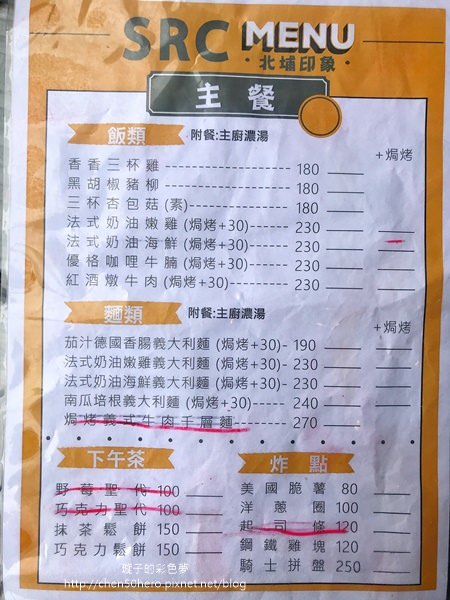 SRC MENU
·北埔印象·
主餐
飯類 附餐:主廚濃湯
+焗烤
香香三杯雞 180
黑胡椒豬柳 180
三杯杏包菇(素) 180
法式奶油嫩雞(焗烤+30) 230
法式奶油海鮮(焗烤+30) 230
優格咖哩牛腩(焗烤+30) 230
紅酒燉牛肉(焗烤+30) 230
麵類 附餐:主廚濃湯
+焗烤
茄汁德國香腸義大利麵(焗烤+30)- 190
法式奶油嫩雞義大利麵(焗烤+30)- 230
法式奶油海鮮義大利麵(焗烤+30)- 230
南瓜培根義大利麵(焗烤+30) 240
焗烤義式牛肉千層麵 270
下午茶
野莓聖代 100
巧克力聖代 100
抹茶鬆餅 150
巧克力鬆餅 150
炸點
美國脆薯 80
洋蔥圈 100
起司條 120
鋼鐵雞塊 120
騎士拼盤 250
琁子的彩色夢
http://chen50hero.pixnet.net/blog